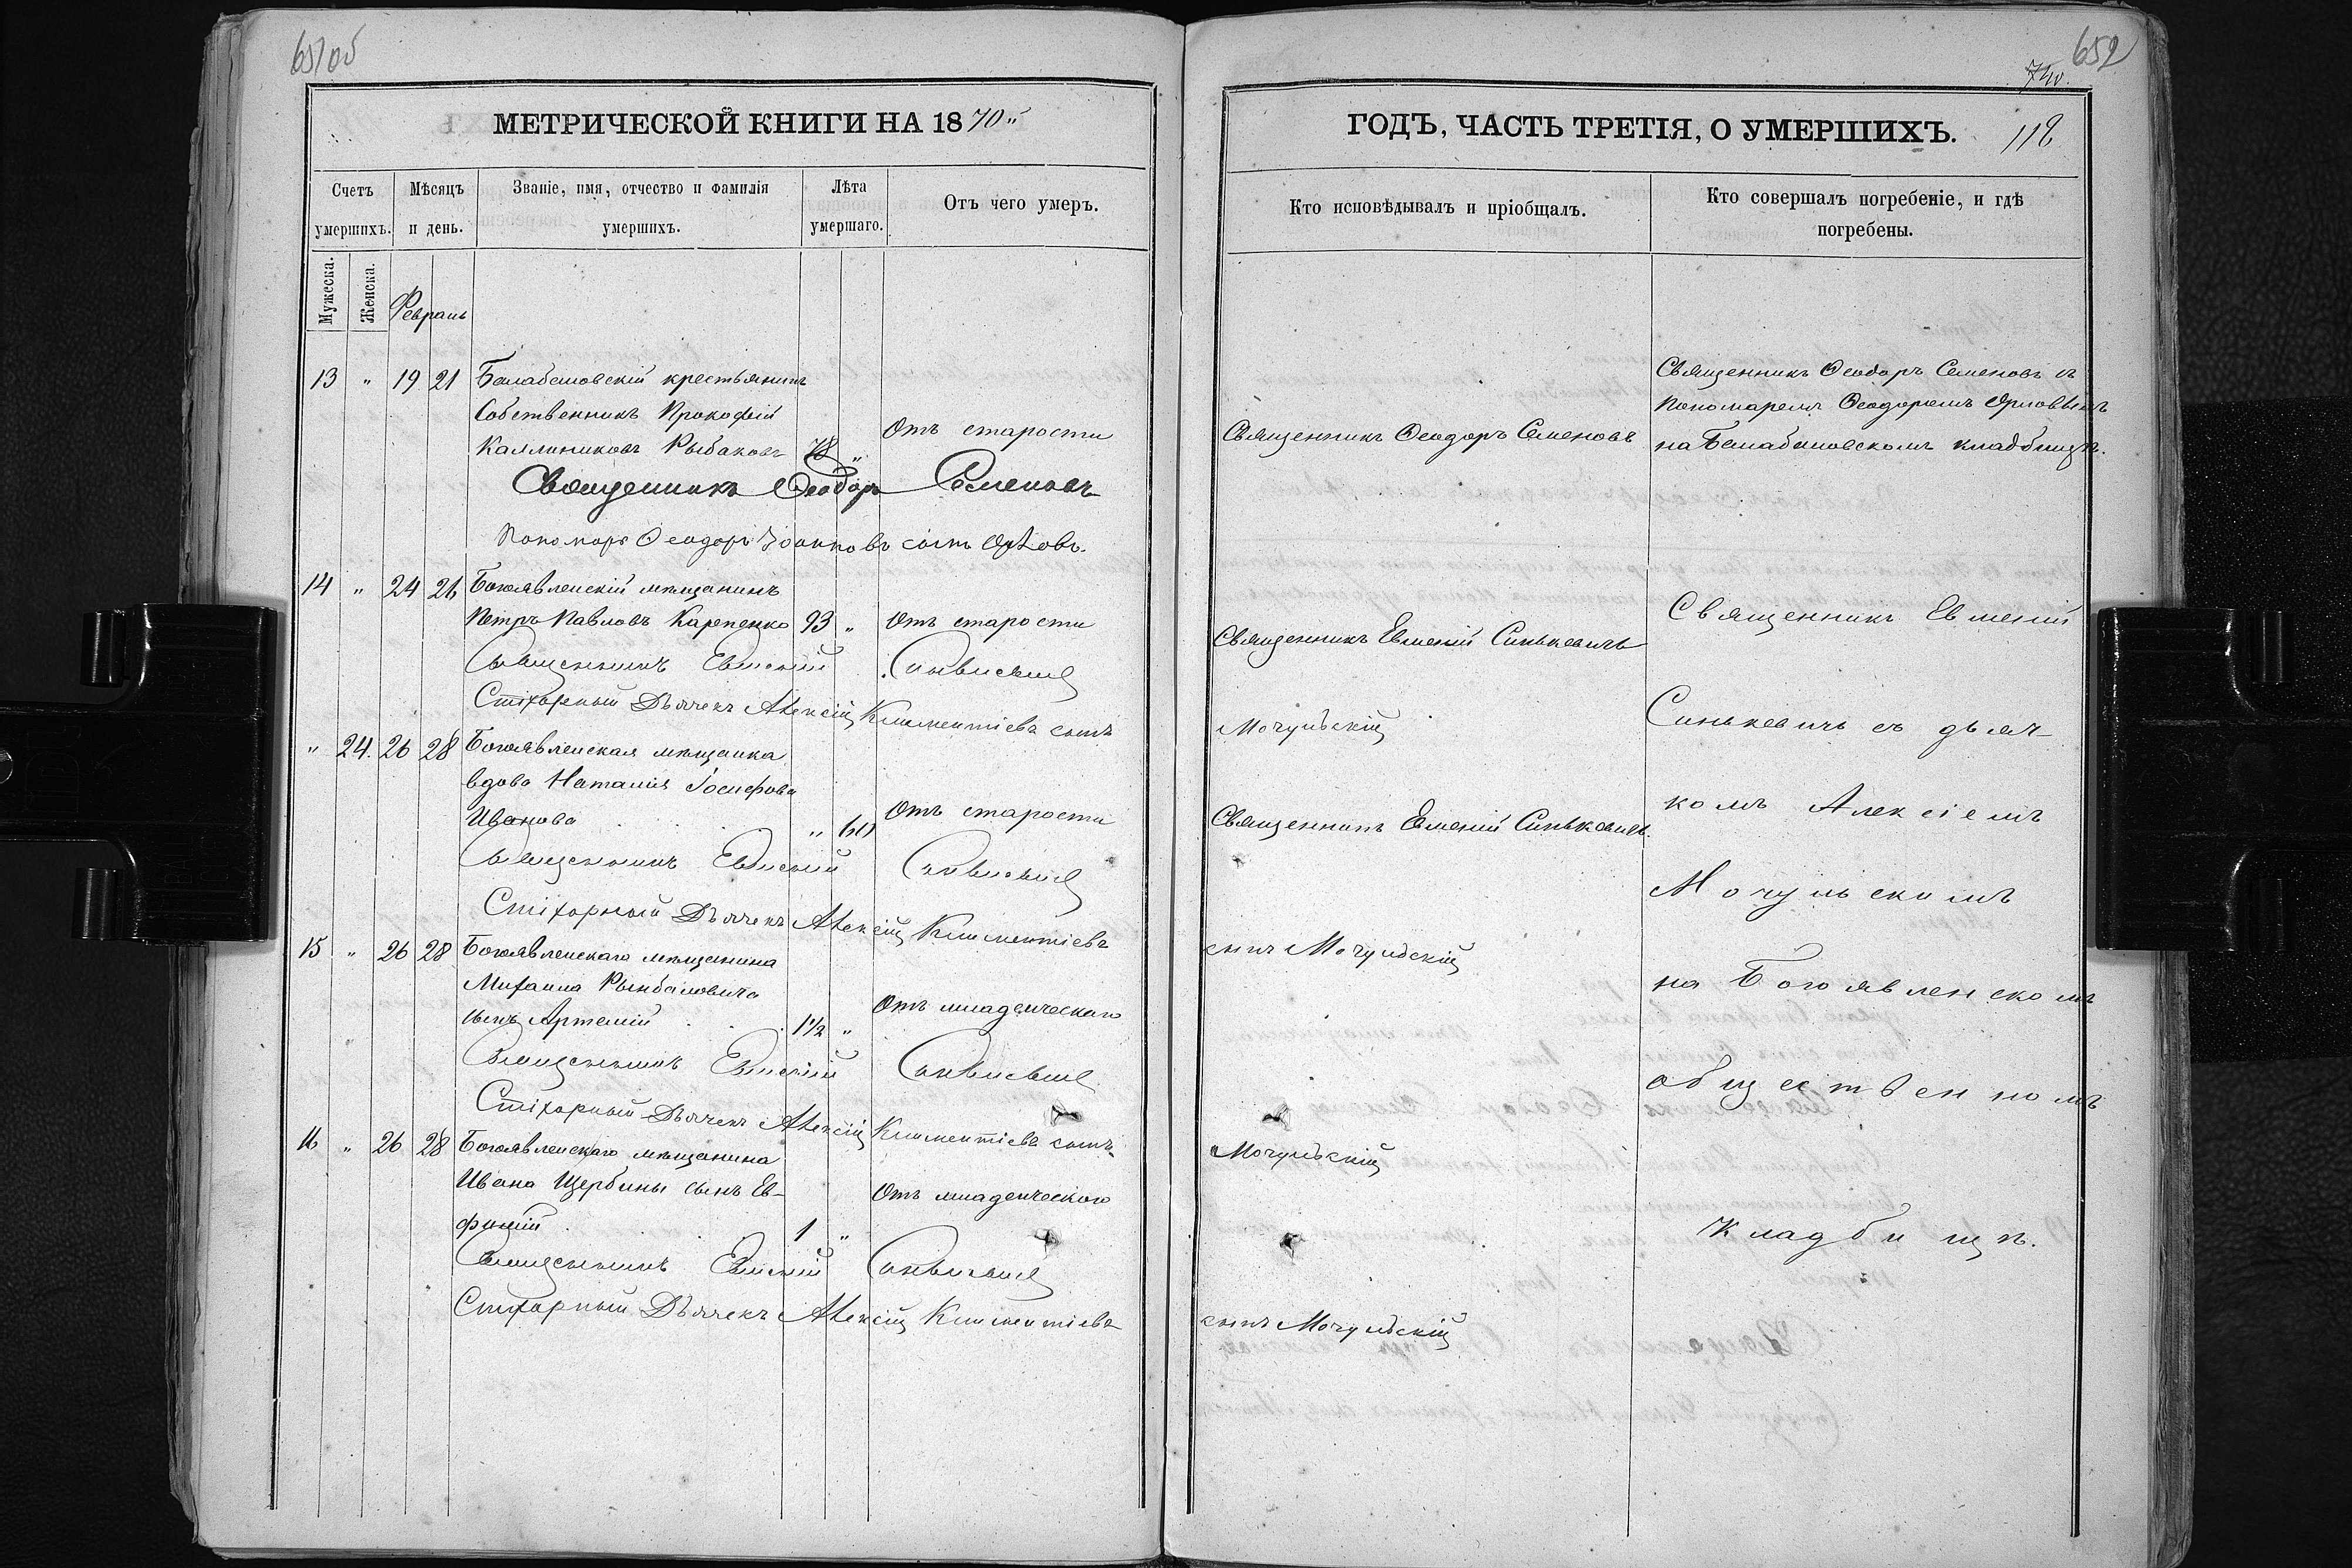 651об
МЕТРИЧЕСКОЙ КНИГИ НА 1870й
Счетъ умершихъ.
Мѣсяцъ и день.
Званіе, имя, отчество и фамилія умершихъ.
Лѣта умершаго.
Отъ чего умеръ.
Мужеска.
Женска.
Февраль
13 " 19 21 Балабановскій крестьянинъ
Собственникъ Прокофій
Каллиниковъ Рыбаковъ 78 " Отъ старости
Священникъ Ѳеодоръ Семеновъ
Пономарь Ѳеодоръ Іоанновъ сынъ Орловъ.
14 " 24 26 Богоявленскій мѣщанинъ
Петръ Павловъ Карпенко 93 " Отъ старости
Священникъ Евменій Синькевичъ
Стихарный Дьячекъ Алексій Климентіевъ сынъ
" 24. 26 28 Богоявленская мѣщанка
вдова Наталія Іосифова
Иванова " 60 Отъ старости
Священникъ Евменій Синькевичъ
Стихарный Дьячекъ Алексій Климентіевъ
15 " 26 28 Богоявленскаго мѣщанина
Михаила Рымбаловича
сынъ Артемій 1½ " Отъ младенческаго
Священникъ Евменій Синькевичъ
Стихарный Дьячекъ Алексій Климентіевъ сынъ
16 " 26 28 Богоявленскаго мѣщанина
Ивана Щербины сынъ Ев-
фимій 1 " Отъ младенческаго
Священникъ Евменій Синькевичъ
Стихарный Дьячекъ Алексій Климентіевъ
652
ГОДЪ, ЧАСТЬ ТРЕТІЯ, О УМЕРШИХЪ.
118
Кто исповѣдывалъ и пріобщалъ.
Кто совершалъ погребеніе, и гдѣ
погребены.
Священникъ Ѳеодоръ Семеновъ
Священникъ Ѳеодоръ Семеновъ съ
Пономаремъ Ѳеодоромъ Орловымъ
на Балабановскомъ кладбищѣ.
Священникъ Евменій Синькевичъ
Мочульскій
Священникъ Евменій Синькевичъ.
сынъ Мочульскій
Мочульскій
сынъ Мочульскій
Священникъ Евменій
Синькевичъ съ дьяч-
комъ Алексіемъ
Мочульскимъ
на Богоявленскомъ
общественномъ
кладбищѣ.